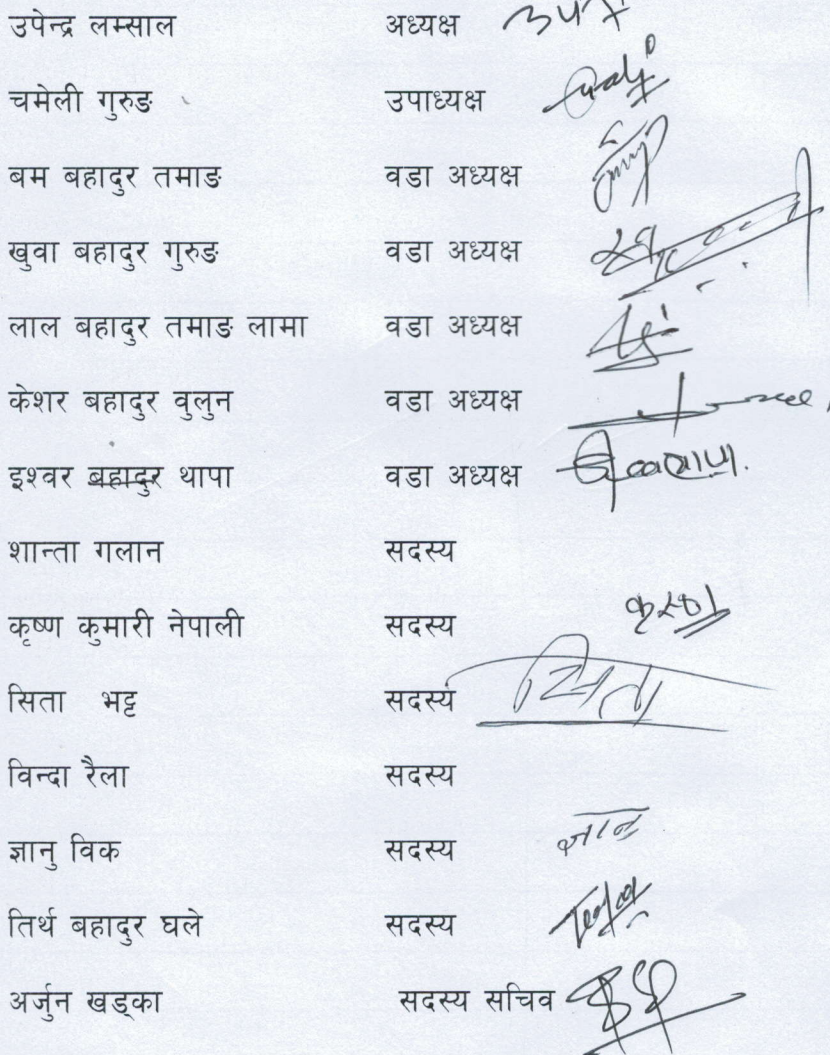 उपेन्द्र लम्साल अध्यक्ष
चमेली गुरुङ उपाध्यक्ष
बम बहादुर तमाङ वडा अध्यक्ष
खुवा बहादुर गुरुङ वडा अध्यक्ष
लाल बहादुर तमाङ लामा वडा अध्यक्ष
केशर बहादुर वुलुन वडा अध्यक्ष
इश्वर बहादुर थापा वडा अध्यक्ष
शान्ता गलान सदस्य
कृष्ण कुमारी नेपाली सदस्य
सिता भट्ट सदस्य सिता
विन्दा रैला सदस्य
ज्ञानु विक सदस्य
तिर्थ बहादुर घले सदस्य
अर्जुन खड्का सदस्य सचिव